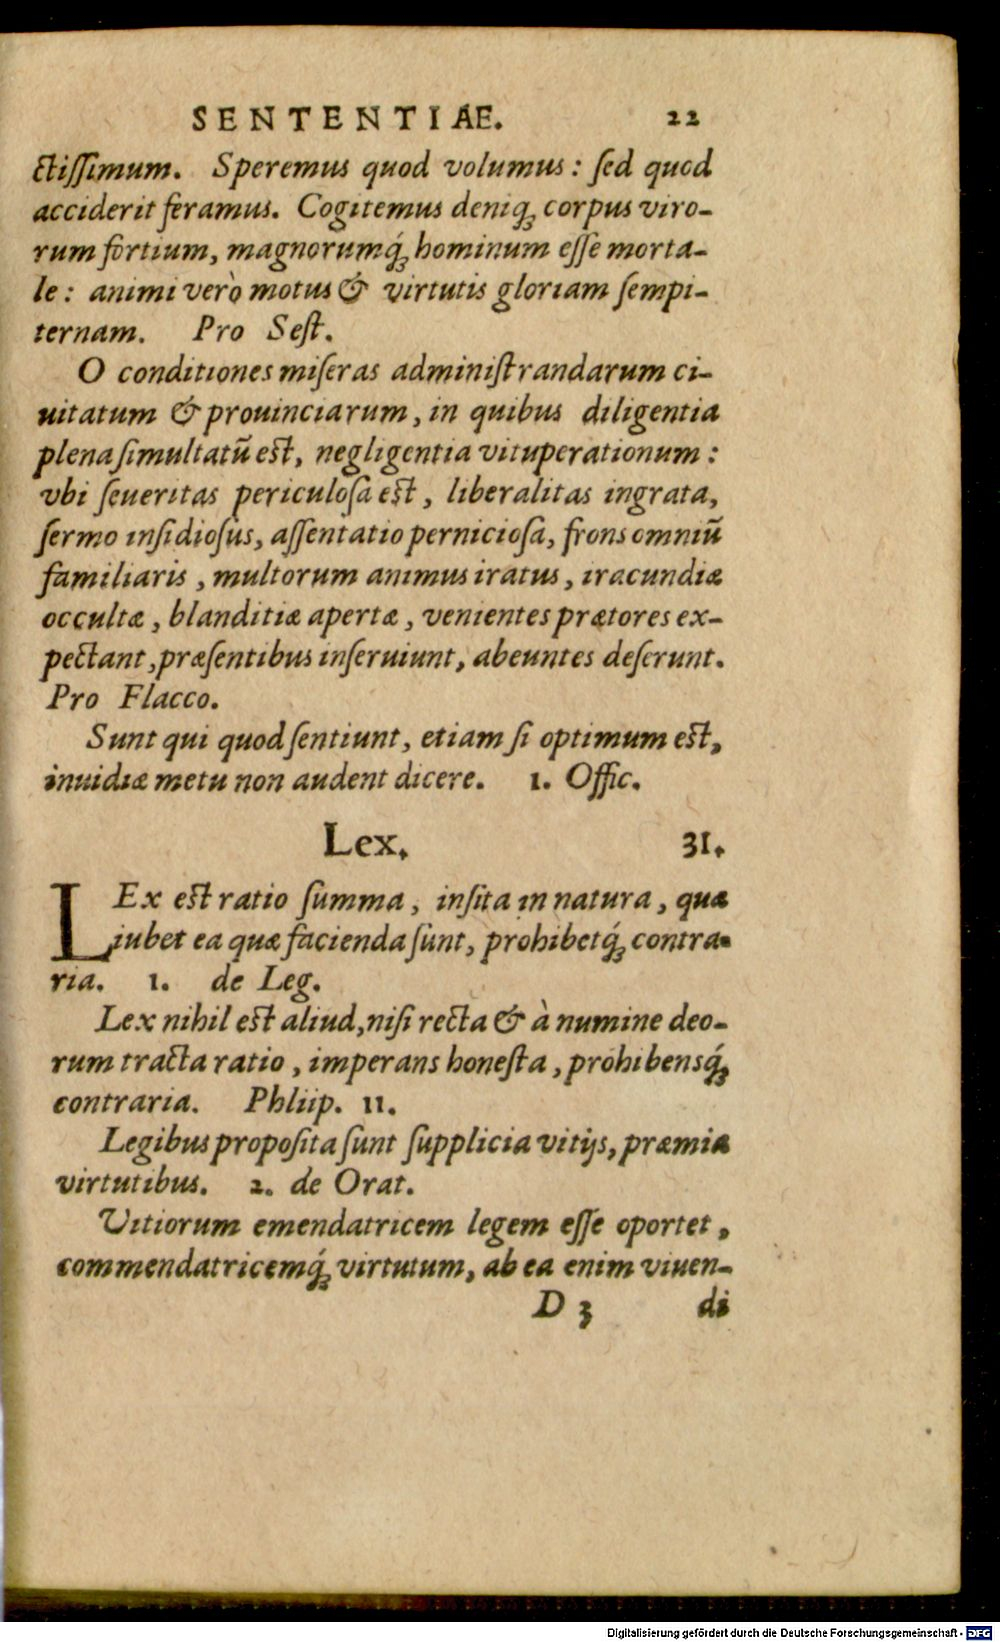 SENTENTIAE. 22
ctiſſimum. Speremus quod volumus: ſed quod
acciderit feramus. Cogitemus deniq; corpus viro-
rum fortium, magnorumq́; hominum eſſe morta-
le: animi verò motus & virtutis gloriam ſempi-
ternam. Pro Seſt.
O conditiones miſeras adminiſtrandarum ci-
uitatum & prouinciarum, in quibus diligentia
plena ſimultatū est, negligentia vituperationum:
vbi ſeueritas periculoſa est, liberalitas ingrata,
ſermo inſidioſus, aſſentatio pernicioſa, frons omniū
familiaris, multorum animus iratus, iracundiæ
occultæ, blanditiæ apertæ, venientes prætores ex-
pectant, præſentibus inſeruiunt, abeuntes deſerunt.
Pro Flacco.
Sunt qui quod ſentiunt, etiam ſi optimum est,
inuidiæ metu non audent dicere. 1. Offic.
Lex. 31.
LEx est ratio ſumma, inſita in natura, quæ
iubet ea quæ facienda ſunt, prohibetq́; contra-
ria. 1. de Leg.
Lex nihil est aliud, niſi recta & à numine deo-
rum tracta ratio, imperans honeſta, prohibensq́;
contraria. Phliip. 11.
Legibus propoſita ſunt ſupplicia vitijs, præmia
virtutibus. 2. de Orat.
Vitiorum emendatricem legem eſſe oportet,
commendatricemq́; virtutum, ab ea enim viuen-
D 3 di
Digitalisierung gefördert durch die Deutsche Forschungsgemeinschaft - DFG